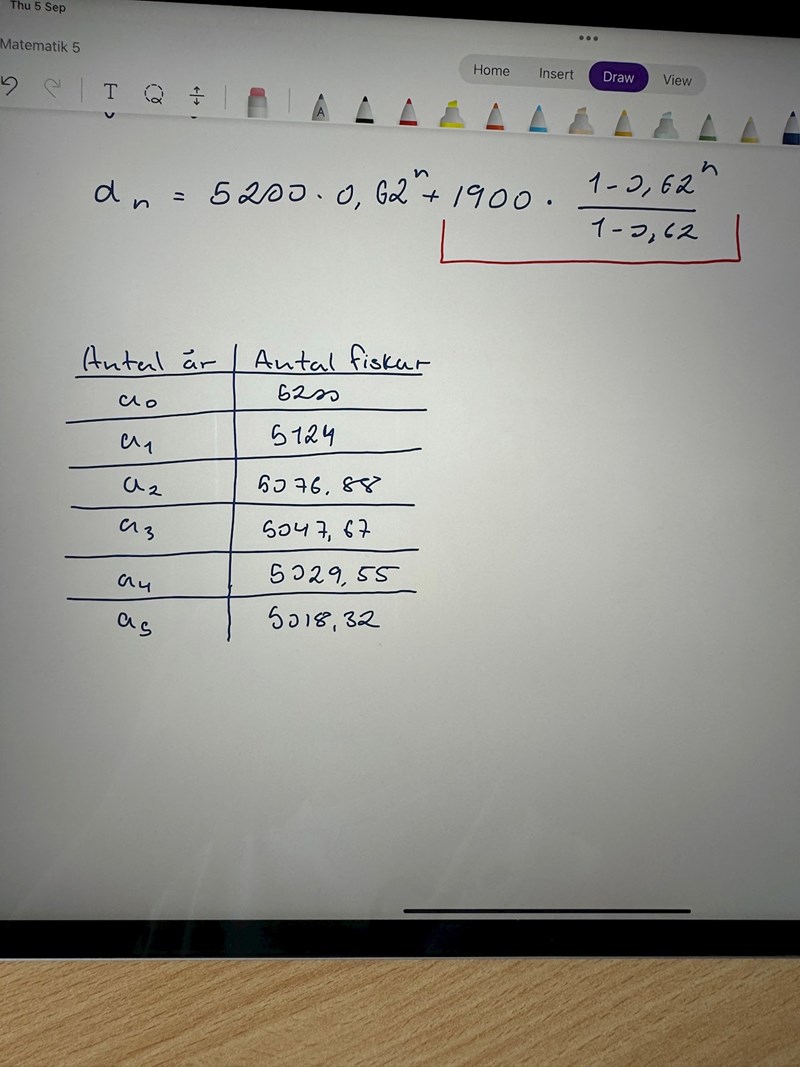 Thu 5 Sep
Matematik 5
Home Insert Draw View
T A
a n = 5200 · 0,62^n + 1900 · (1-0,62^n)/(1-0,62)
Antal år | Antal fiskar
a0 | 5200
a1 | 5124
a2 | 5076.88
a3 | 5047,67
a4 | 5029,55
a5 | 5018,32